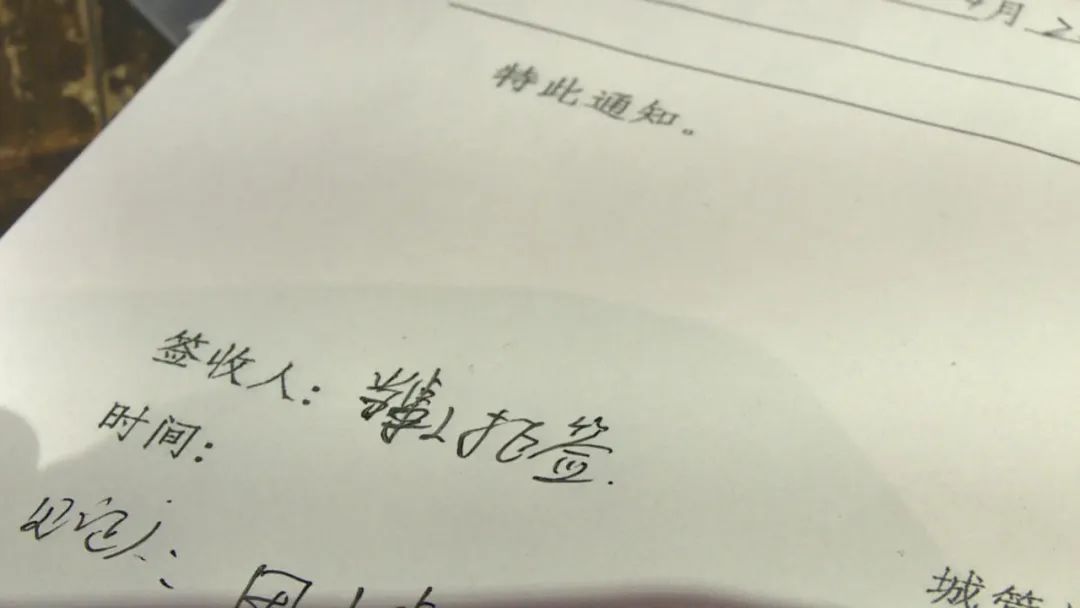 月 2
特此通知。
签收人: 拒签.
时间:
见证人:
城管